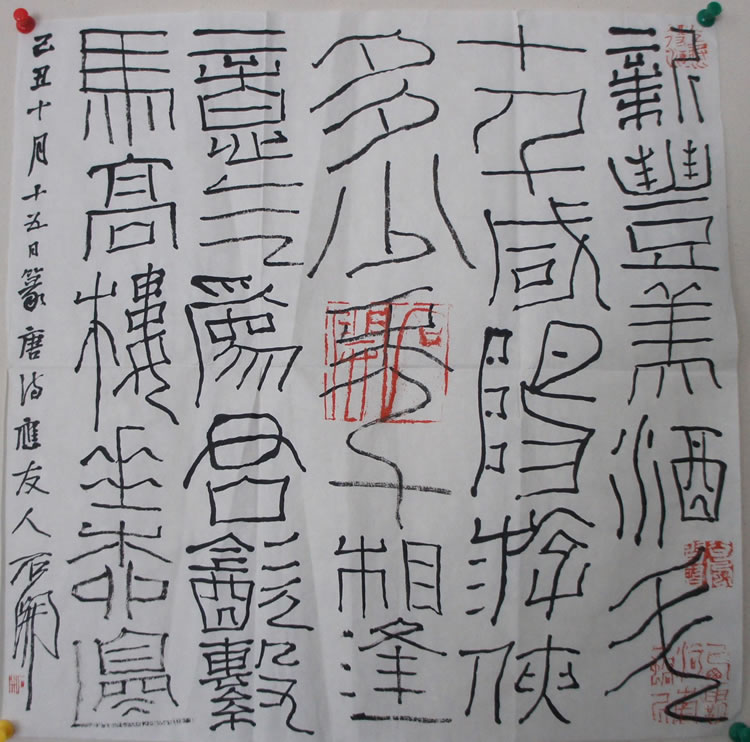 新豐美酒斗
十千咸陽游俠
多少年相逢
意气為君飲繫
馬高樓垂柳邊
己丑十月十五日篆唐诗應友人石開